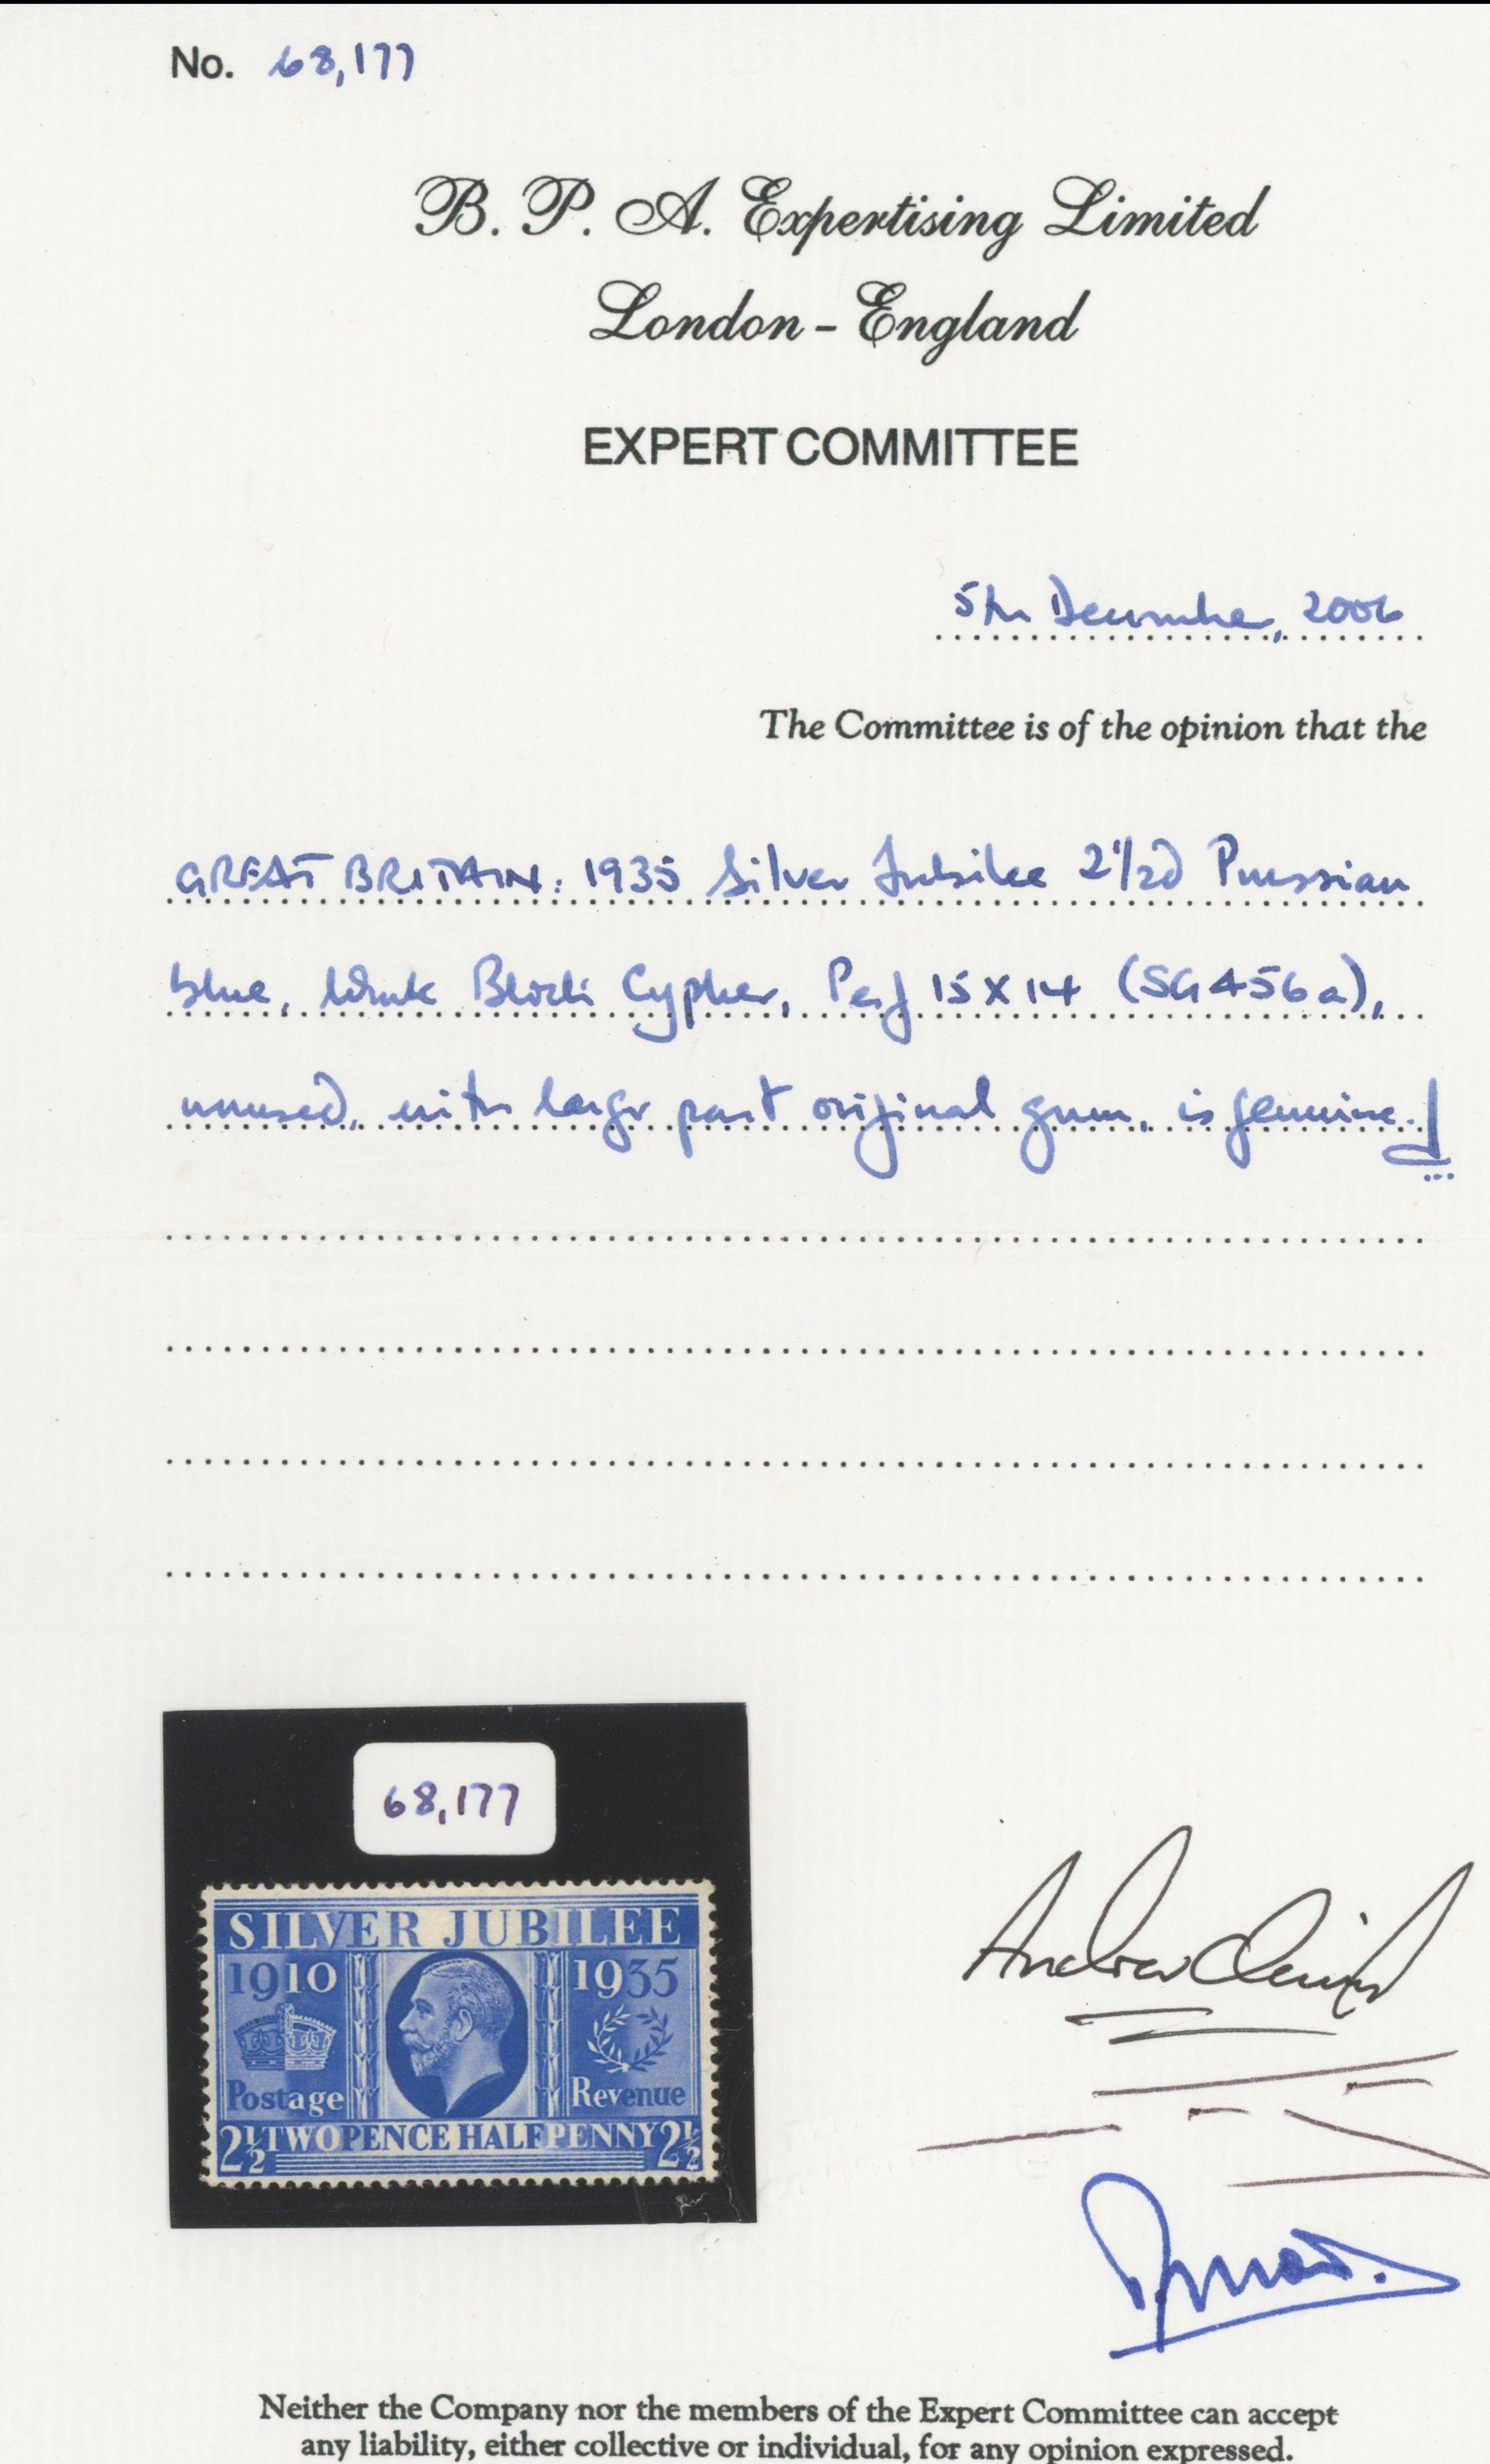 No. 68,177
B. P. A. Expertising Limited
London - England
EXPERT COMMITTEE
5th December, 2006
The Committee is of the opinion that the
GREAT BRITAIN: 1935 Silver Jubilee 2½d Prussian
blue, Wmk Block Cypher, Perf 15 X 14 (SG 456a),
unused, with large part original gum, is genuine.
68,177
SILVER JUBILEE
1910 1935
Postage Revenue
2½ TWOPENCE HALFPENNY 2½
Neither the Company nor the members of the Expert Committee can accept
any liability, either collective or individual, for any opinion expressed.